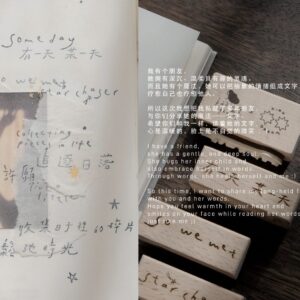 someday
有一天 某一天
so we met
star chaser
collecting
pieces in life
追逐日落
許願
收集日常60碎片
時光
我有個朋友
她擁有深沉、溫柔且有趣的靈魂，
而且她有個魔法，她可以把抽象的情緒組成文字，
療愈自己也療愈他人。
所以這次我想把我私藏了
與你們分享她的魔法——文字。
希望你們和我一樣，讀著她的文字
心是溫暖的，臉上是不自覺的微笑
I have a friend,
she has a gentle, and deep soul.
She hugs her inner child and
also embrace herself in words.
Through words, she heals herself and me :)
So this time, I want to share my long-held f
with you and her words.
Hope you feel warmth in your heart and
smiles on your face while reading her words
just like me :)
so we met
star chaser